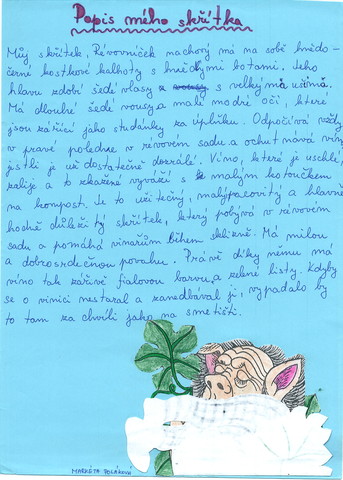 Popis mého skřítka
Můj skřítek, Révovníček machový má na sobě hnědo-
černé kostkové kalhoty s hnědými botami. Jeho
hlavu zdobí šedé vlasy s velkýma ušima.
Má dlouhé šedé vousy a malé modré oči, které
jsou zářící jako studánky za úplňku. Odpočívá vždy
v pravé poledne v révovém sadu a ochutnává víno
jestli je už dostatečně dozrálé. Víno, které je uschlé,
zalije a to zkažené vyváží s malým kotoučkem
na kompost. Je to užitečný, malý, pacovitý a hlavně
hodně důležitý skřítek, který pobývá v révovém
sadu a pomáhá vinařům během sklizně. Má milou
a dobrosrdečnou povahu. Právě díky němu má
víno tak zářivě fialovou barvu a zelené listy. Kdyby
se o vinici nestaral a zanedbával ji, vypadalo by
to tam za chvíli jako na smetišti.
MARKÉTA POLÁKOVÁ